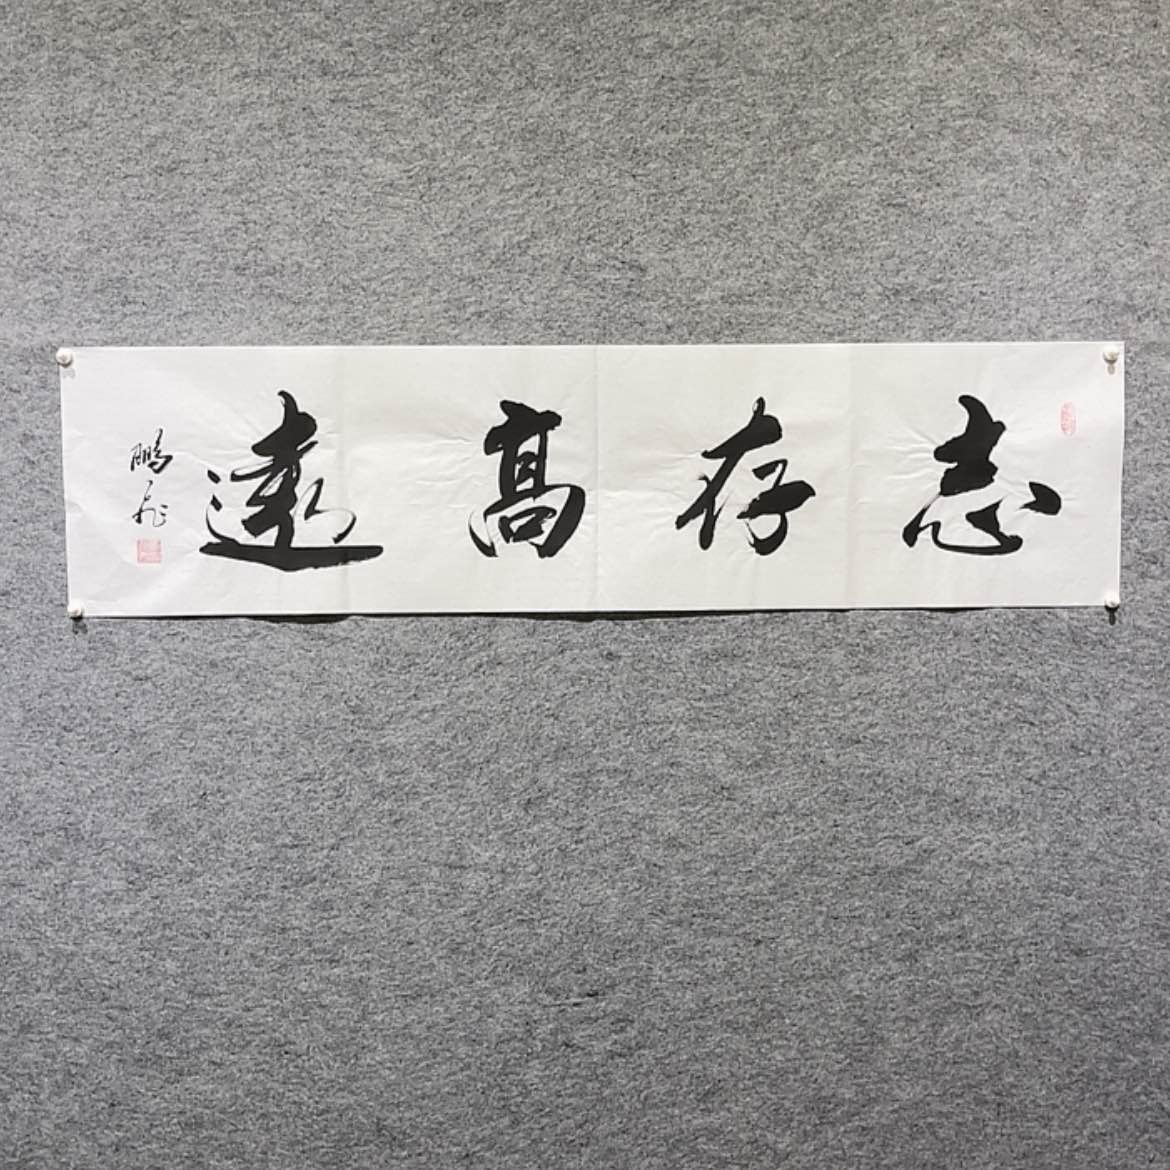 志存高遠
鹏飛